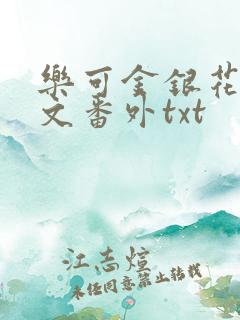 樂可金銀花
文番外txt
江志煊
未经同意禁止转载